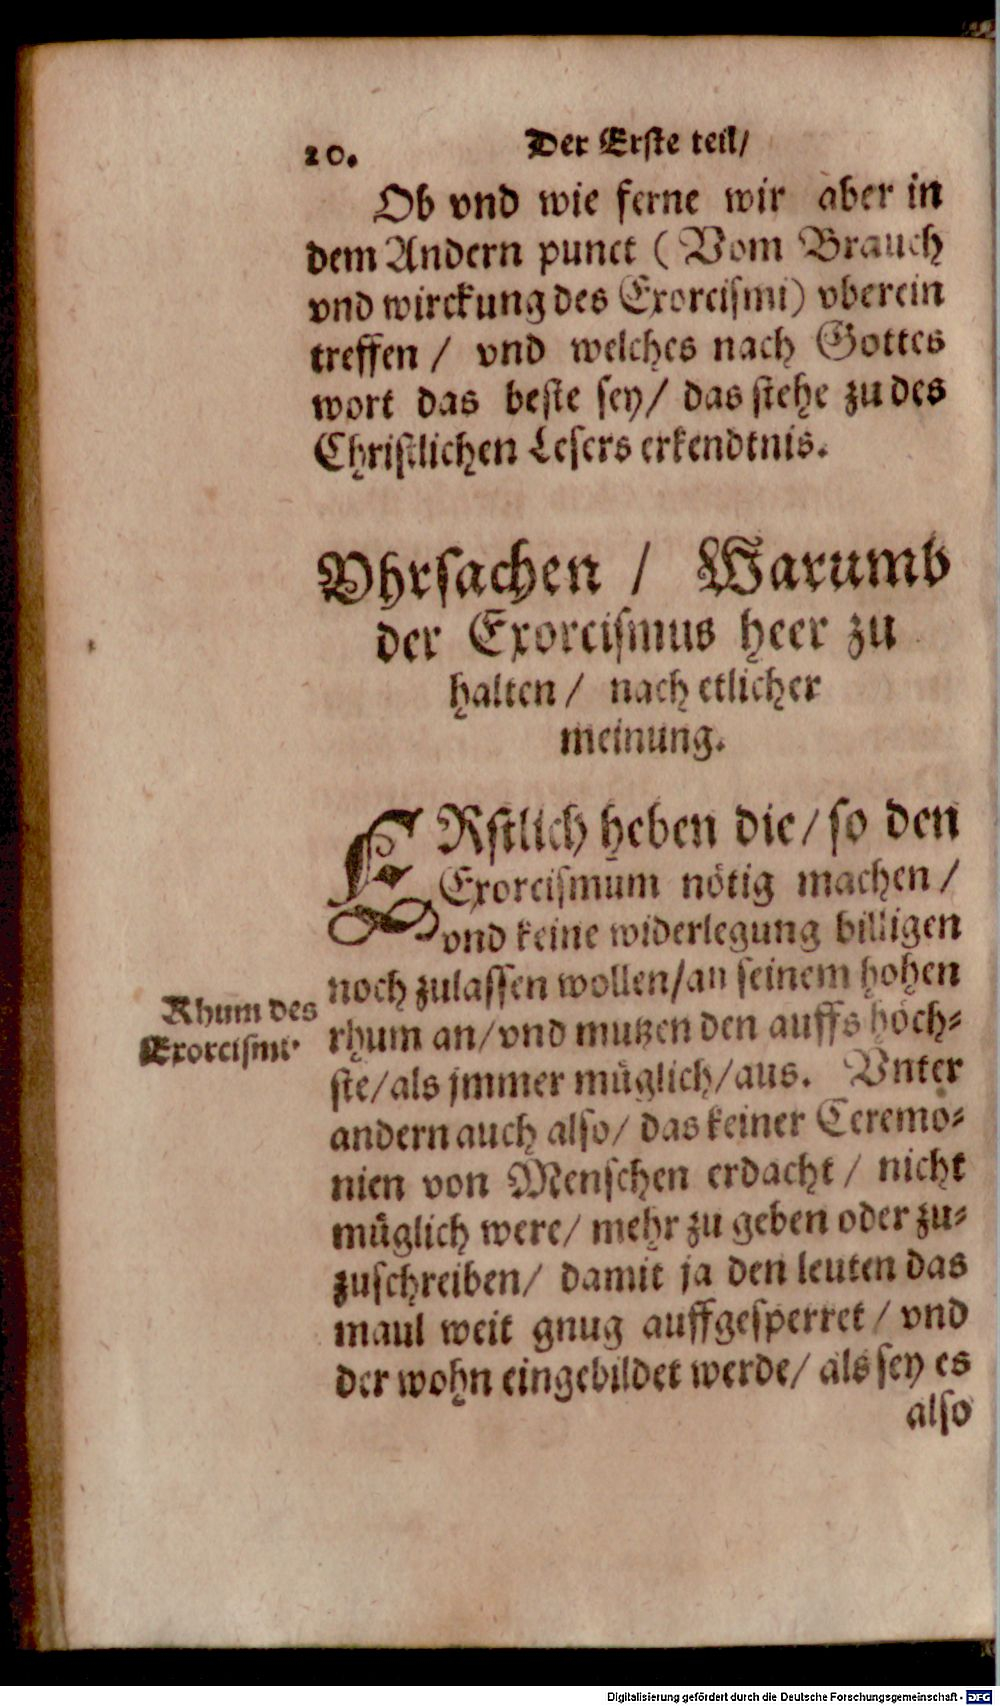 20.
Der Erste teil/
Ob vnd wie ferne wir aber in
dem Andern punct ( Vom Brauch
vnd wirckung des Exorcismi) vberein
treffen / vnd welches nach Gottes
wort das beste sey/ das stehe zu des
Christlichen Lesers erkendtnis.
Vhrsachen / Warumb
der Exorcismus heer zu
halten / nach etlicher
meinung.
ERstlich heben die/ so den
Exorcismum nötig machen /
vnd keine widerlegung billigen
noch zulassen wollen/an seinem hohen
rhum an/vnd mutzen den auffs höch-
ste/als jmmer müglich/aus. Vnter
andern auch also/ das keiner Ceremo-
nien von Menschen erdacht / nicht
müglich were/ mehr zu geben oder zu-
zuschreiben/ damit ja den leuten das
maul weit gnug auffgesperret / vnd
der wohn eingebildet werde/ als sey es
also
Rhum des
Exorcismi.
Digitalisierung gefördert durch die Deutsche Forschungsgemeinschaft - DFG